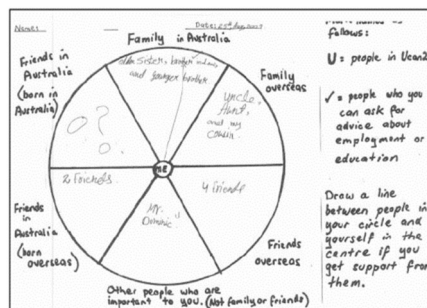 Names
Date:
Family in Australia
Friends in
Australia
(born in
Australia)
older sister,
and younger brother
Family
overseas
Uncle,
Aunt,
and my
cousin.
0?
ME
2 friends.
4 friends
Mr.
Dominic
Friends
in
Australia
(born
overseas)
Friends
overseas
Other people who are
important to you. (Not family or friends)
follows:
U = people in Ucan2
✓ = people who you
can ask for
advice about
employment or
education
Draw a line
between people in
your circle and
yourself in the
centre if you
get support from
them.